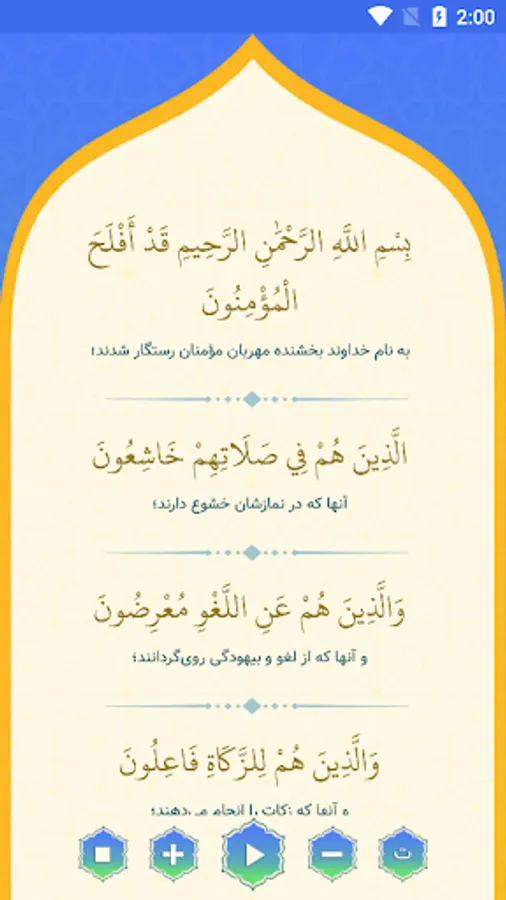 2:00
بِسْمِ اللَّهِ الرَّحْمَٰنِ الرَّحِيمِ قَدْ أَفْلَحَ
الْمُؤْمِنُونَ
به نام خداوند بخشنده مهربان مؤمنان رستگار شدند؛
الَّذِينَ هُمْ فِي صَلَاتِهِمْ خَاشِعُونَ
آنها که در نمازشان خشوع دارند؛
وَالَّذِينَ هُمْ عَنِ اللَّغْوِ مُعْرِضُونَ
و آنها که از لغو و بیهودگی روی‌گردانند؛
وَالَّذِينَ هُمْ لِلزَّكَاةِ فَاعِلُونَ
و آنها که زکات را انجام می‌دهند؛
ت